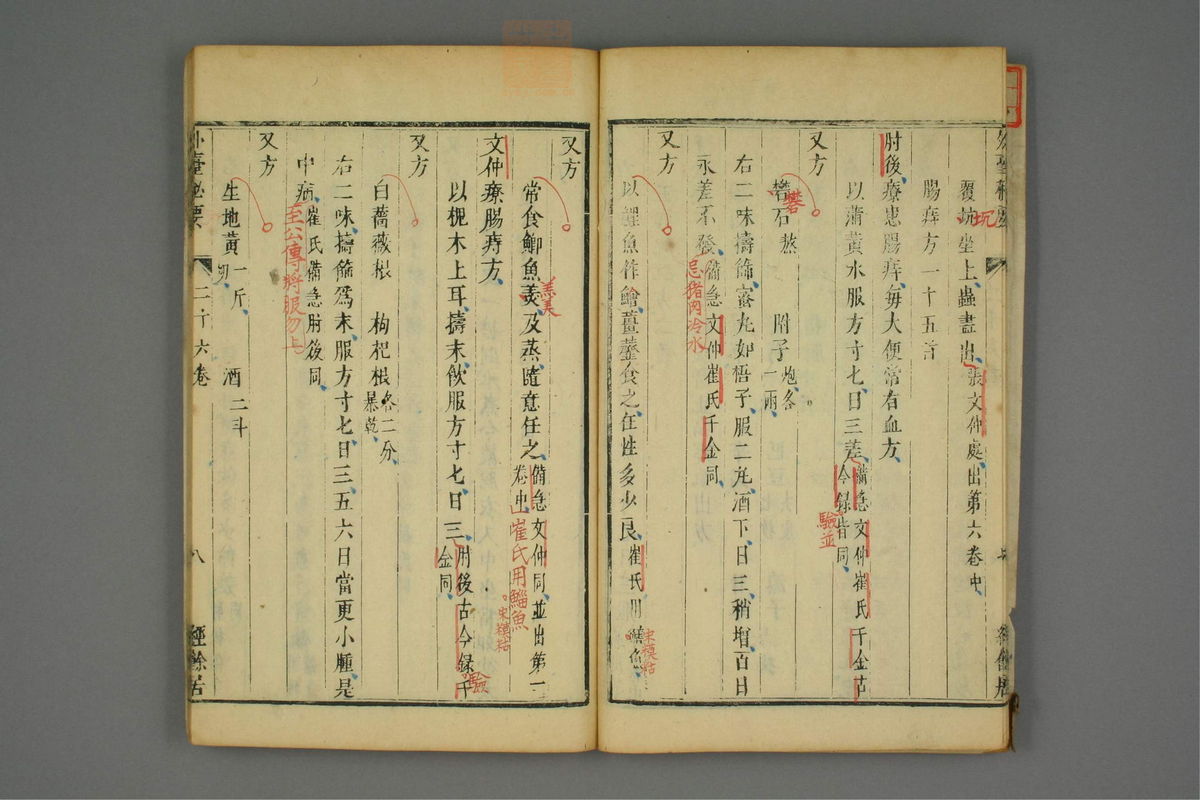 外臺秘要
覆坑坐上蟲盡出張文仲處出第六卷中
坑
腸痔方一十五首
肘後療患腸痔每大便常有血方
以蒲黃水服方寸匕日三差備急文仲崔氏千金古
今錄皆同
驗並
又方
礬石熬 附子炮各
一兩
礬
右二味擣篩蜜丸如梧子服二丸酒下日三稍增百日
永差不發備急文仲崔氏千金同
忌猪肉冷水
又方
以鯉魚作鱠薑虀食之任性多少良崔氏用
宋模粘
又方
常食鯽魚羹及蒸隨意任之備急文仲同並出第二
卷中
羔美
崔氏用鯔魚
宋模粘
文仲療腸痔方
以槐木上耳擣末飲服方寸匕日三肘後古今錄千
金同
驗
又方
白薔薇根 枸杞根各二分
暴乾
右二味擣篩為末服方寸匕日三五六日當更小腫是
中病崔氏備急肘後同
至公傳將服勿与
又方
生地黃一斤
切
酒二斗
外臺秘要 二十六卷 八 經餘居